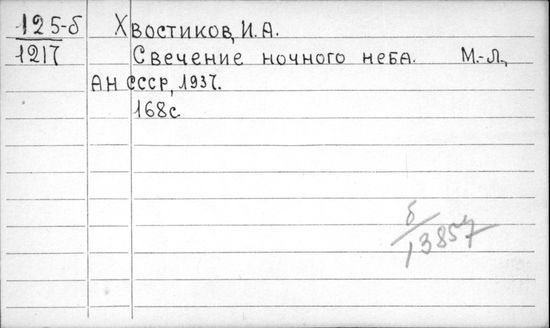 125-б Хвостиков, И.А.
1217 Свечение ночного неба. М.-Л.,
АН СССР, 1937.
168с
б/13857